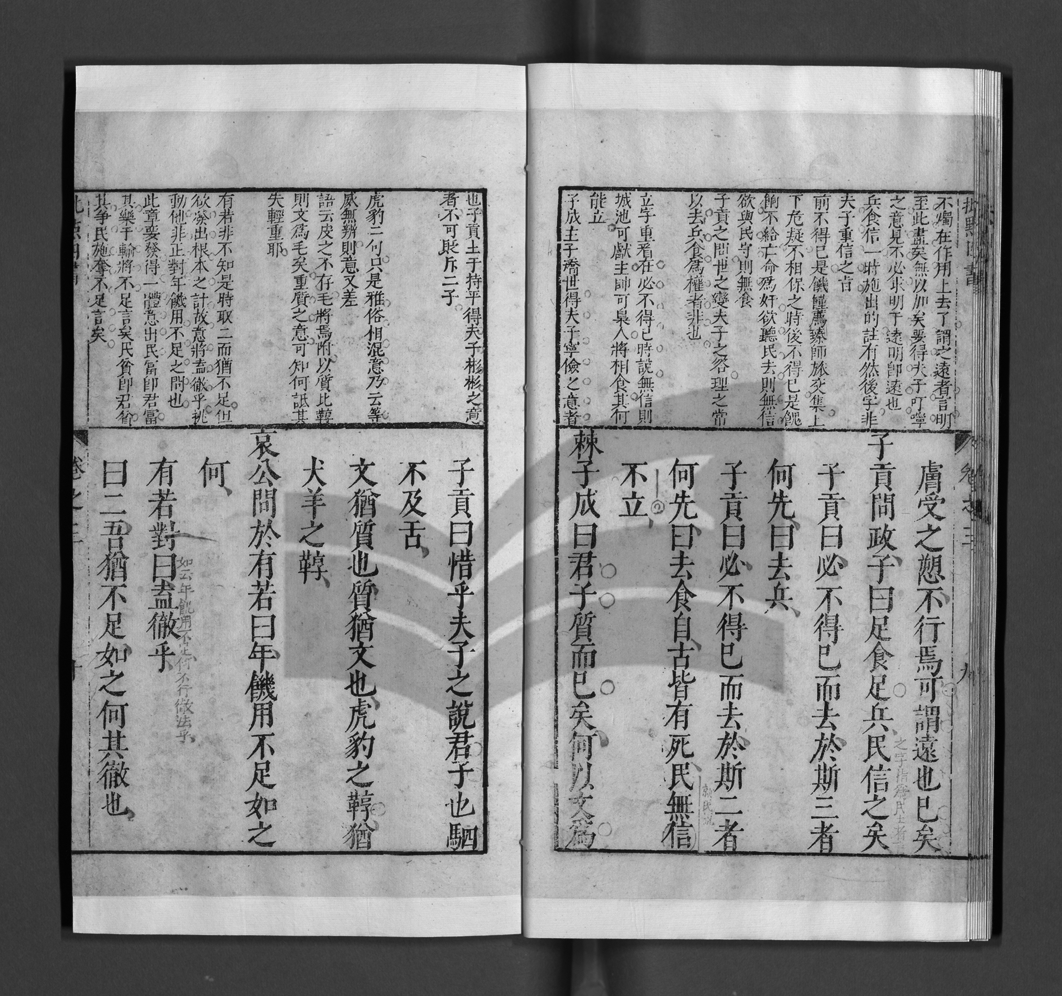 不燭在作用上去了謂之遠者言明
至此盡矣無以加矣要得夫子叮嚀
之意見不必求明于遠明卽遠也
兵食信一時施出的註有然後字非
夫子重信之旨
前不得已是儀
下危疑不相保之時後不得已是
餉不給亡命爲奸欲聽民去則無信
欲與民守則無食
子貢之問世之變夫子之答理之常
以去兵食爲權者非也
立字重看在必不得已時說無信則
城池可獻主帥可梟人將相食其何
能立
子成主于矯世得夫子寧儉之意者
膚受之愬不行焉可謂遠也已矣
子貢問政子曰足食足兵民信之矣
子貢曰必不得已而去於斯三者
何先曰去兵
子貢曰必不得已而去於斯二者
何先曰去食自古皆有死民無信
不立
棘子成曰君子質而已矣何以文爲
卷之三
九
也子貢主于持平得夫子彬彬之意
者不可貶斥二子
虎豹二句只是雅俗相混意乃云等
威無辨則意又差
語云皮之不存毛將焉附以質比鞟
則文爲毛矣重質之意可知何詆其
失輕重耶
有若非不知是時取二而猶不足但
欲發出根本之計故意將盍徹乎挑
動他非正對年饑用不足之問也
此章要發得一體意出民富卽君富
其樂于輸將不足言矣民貧卽君貧
其爭民施奪不足言矣
子貢曰惜乎夫子之說君子也駟
不及舌
文猶質也質猶文也虎豹之鞟猶
犬羊之鞟
哀公問於有若曰年饑用不足如之
何
有若對曰盍徹乎
如云年饑用不足何不行徹法乎
曰二吾猶不足如之何其徹也
卷之三
十